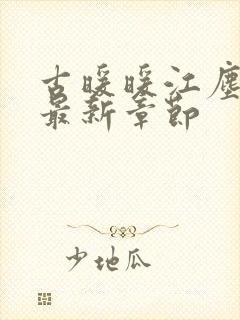 古暖暖江塵
最新章節
少地瓜